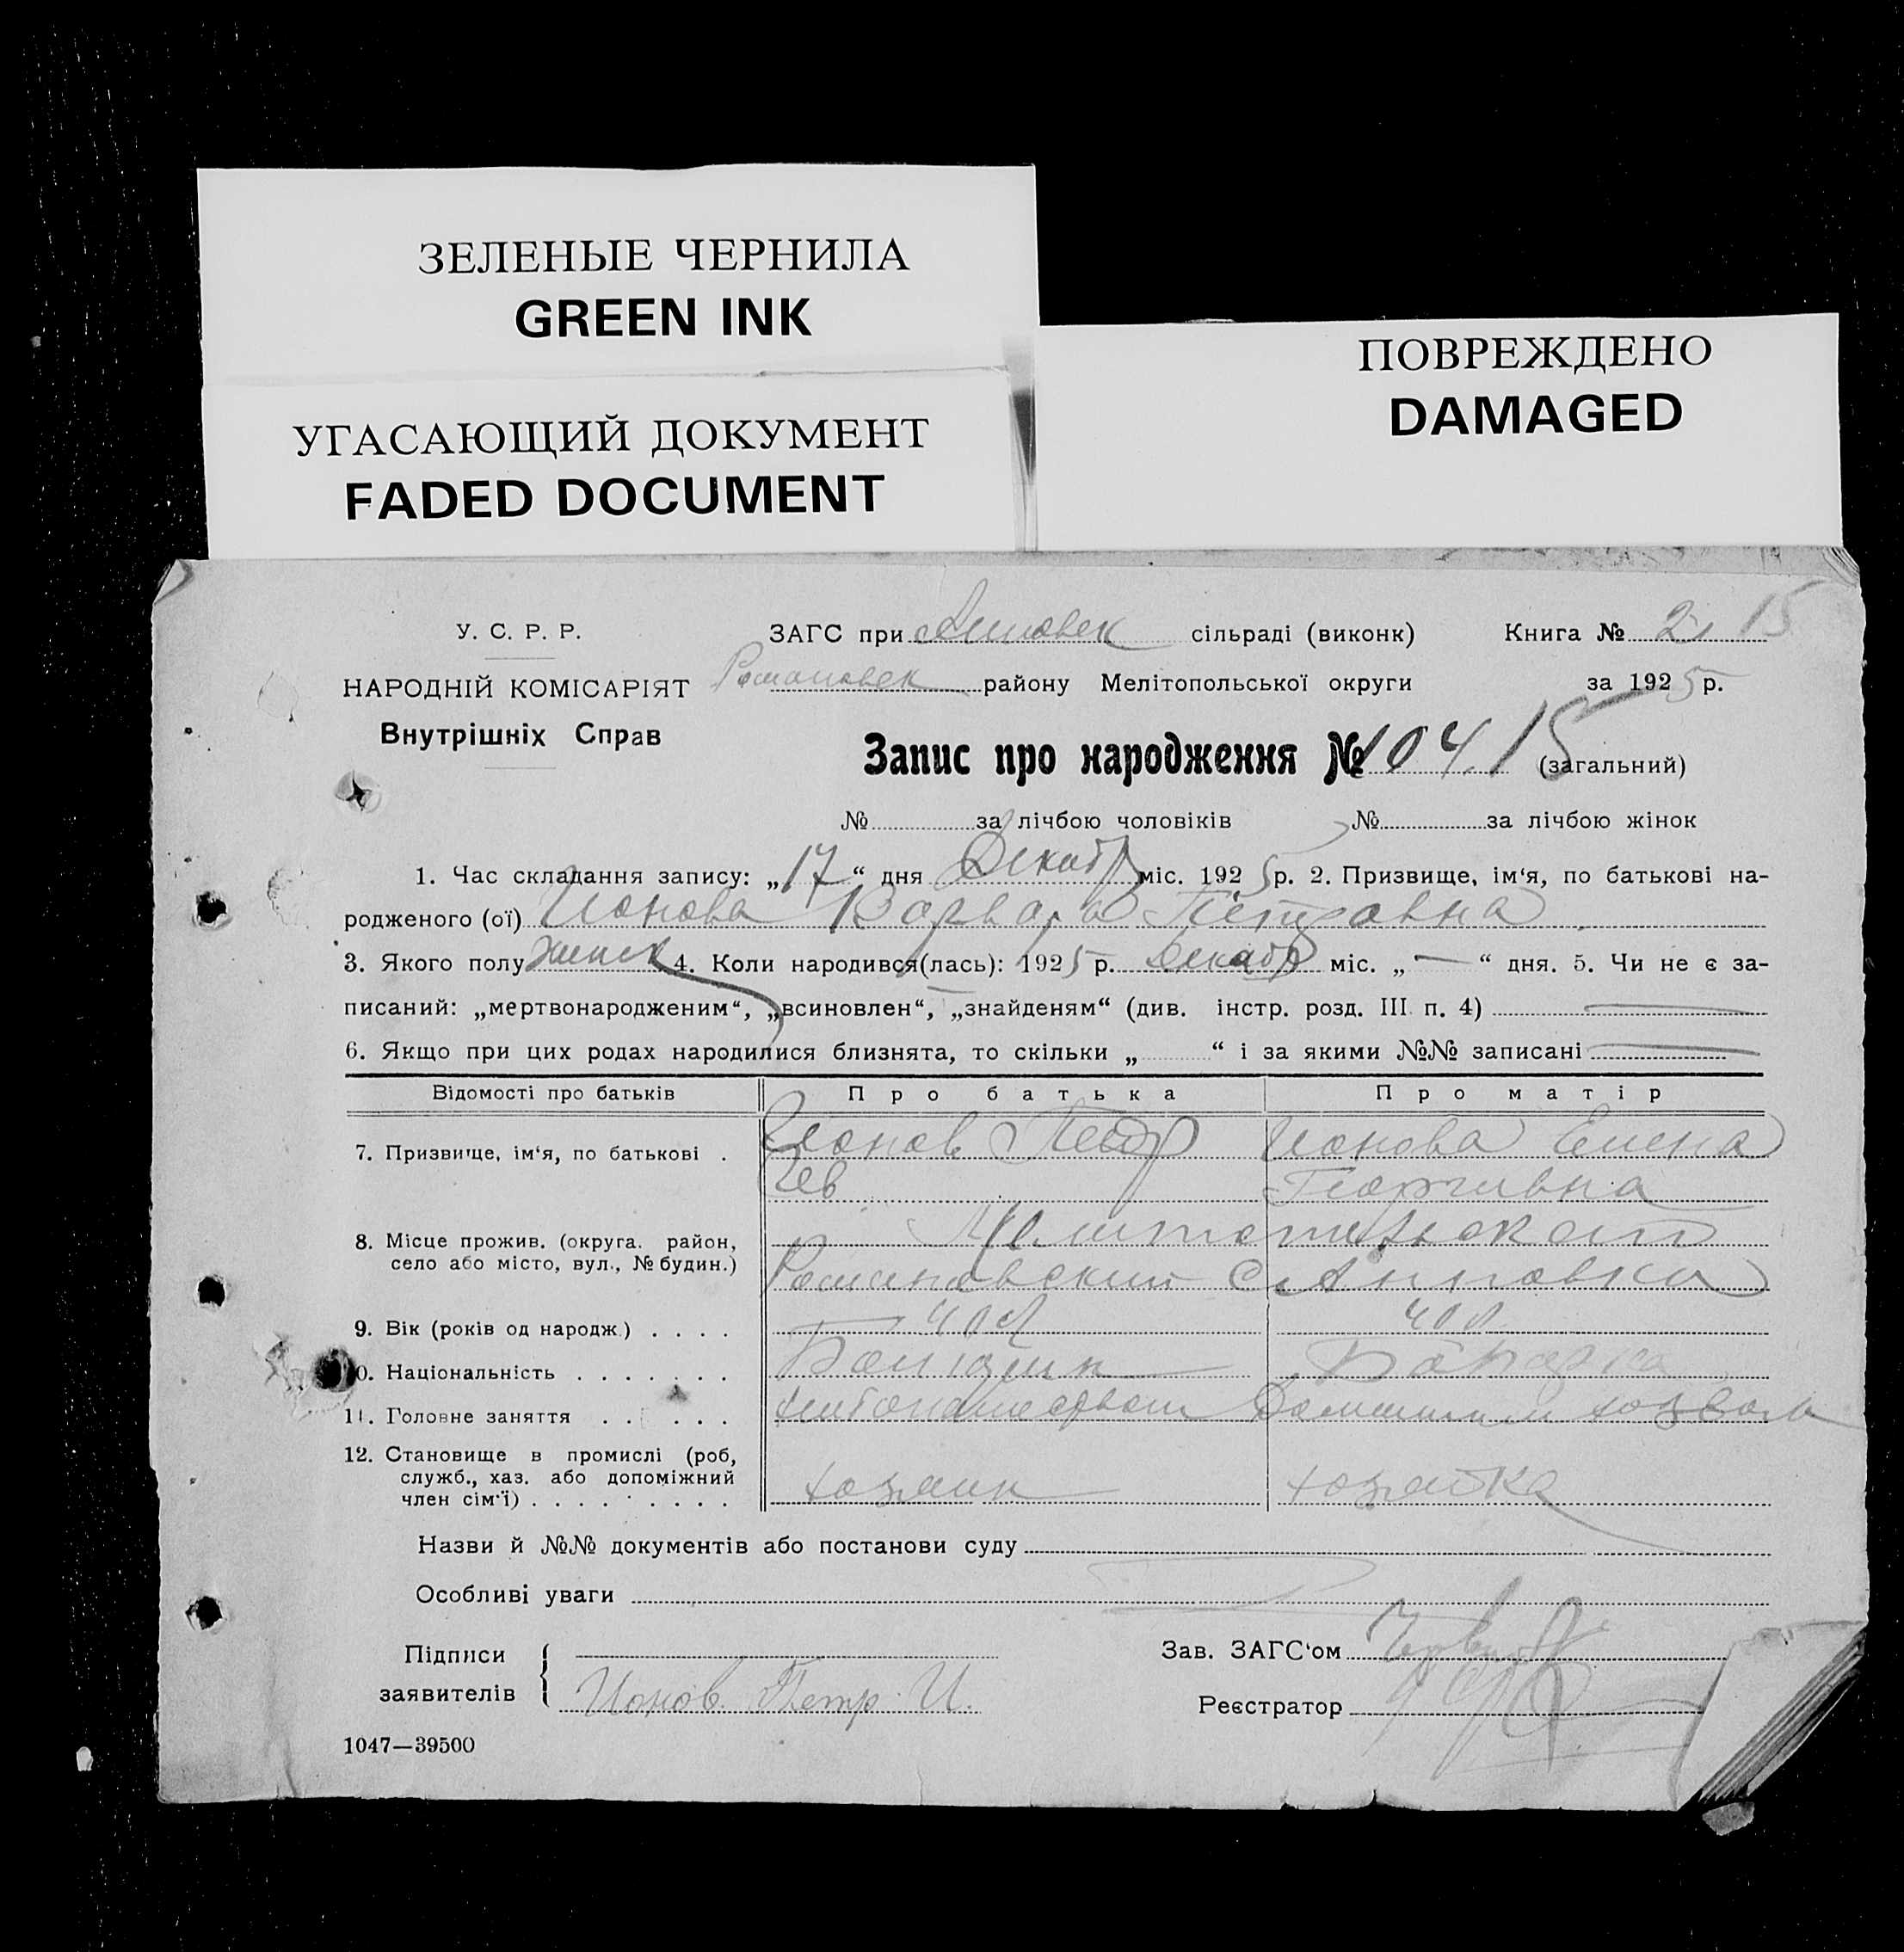 ЗЕЛЕНЫЕ ЧЕРНИЛА
GREEN INK
УГАСАЮЩИЙ ДОКУМЕНТ
FADED DOCUMENT
ПОВРЕЖДЕНО
DAMAGED
У. С. Р. Р.
НАРОДНІЙ КОМІСАРІЯТ
Внутрішніх Справ
ЗАГС при сільраді (виконк) Книга № 2 15
Романовек району Мелітопольської округи за 1925 р.
Запис про народження № 104. 15 (загальний)
№ за лічбою чоловіків № за лічбою жінок
1. Час складання запису: „17“ дня Декабр міс. 1925 р. 2. Призвище, ім‘я, по батькові на-
родженого (ої) Ионова Варвара Петровна
3. Якого полу женск 4. Коли народився(лась): 1925 р. Декабр міс. „—“ дня. 5. Чи не є за-
писаний: „мертвонародженим“, „всиновлен“, „знайденям“ (див. інстр. розд. III п. 4) —
6. Якщо при цих родах народилися близнята, то скільки „ “ і за якими №№ записані —
Відомості про батьків Про батька Про матір
7. Призвище, ім‘я, по батькові . Ионов Петр Ионова Елена
Георгивна
8. Місце прожив. (округа. район,
село або місто, вул., № будин.)
Романовский с Анновка
9. Вік (років од народж.) . . . . 40 л 40 л.
10. Національність . . . . . . .
11. Головне заняття . . . . . .
12. Становище в промислі (роб,
служб., хаз. або допоміжний
член сім‘ї) . . . . . . . . . хозяин хозяйка
Назви й №№ документів або постанови суду
Особливі уваги
Підписи
заявителів Ионов Петр И.
Зав. ЗАГС‘ом
Реєстратор
1047—39500